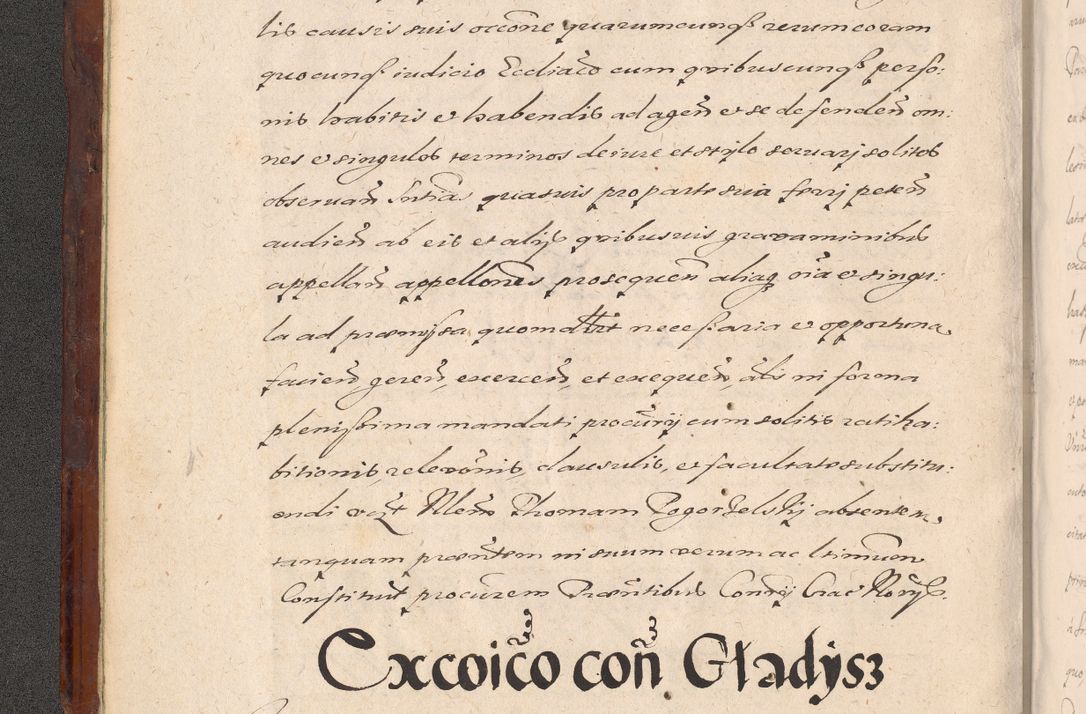 lib causis suis occõne quarumcunqß rerum coram
quocunqß iudicio Eccliaco cum qribuscunqß perso:
nis habitis et habendis ad agen̄ et se defenden̄ om:
nes et singulos terminos de iure et stylo seruarj solitos
obseruan̄ Sntias quasuis pro parte sua ferrj peten̄
audien̄ ab eis et alijs qribusuis grauaminibus
appellan̄ appellones prosequen̄ aliaq oia et singu:
la ad præmissa quomodolibet necessaria et opportuna
facien̄, geren̄, exercen̄, et exequen̄, als in forma
plenissima mandati procurij cum solitis ratiha:
bitionis, releuonis, clausulis, et facultate substitu:
endi Thomam Pogorzelskij absentem,
tanquam præntem in suum verum ac ltimum
Constituit procurem Præntibus Crac Norijs.
Excoico con Gładijsz